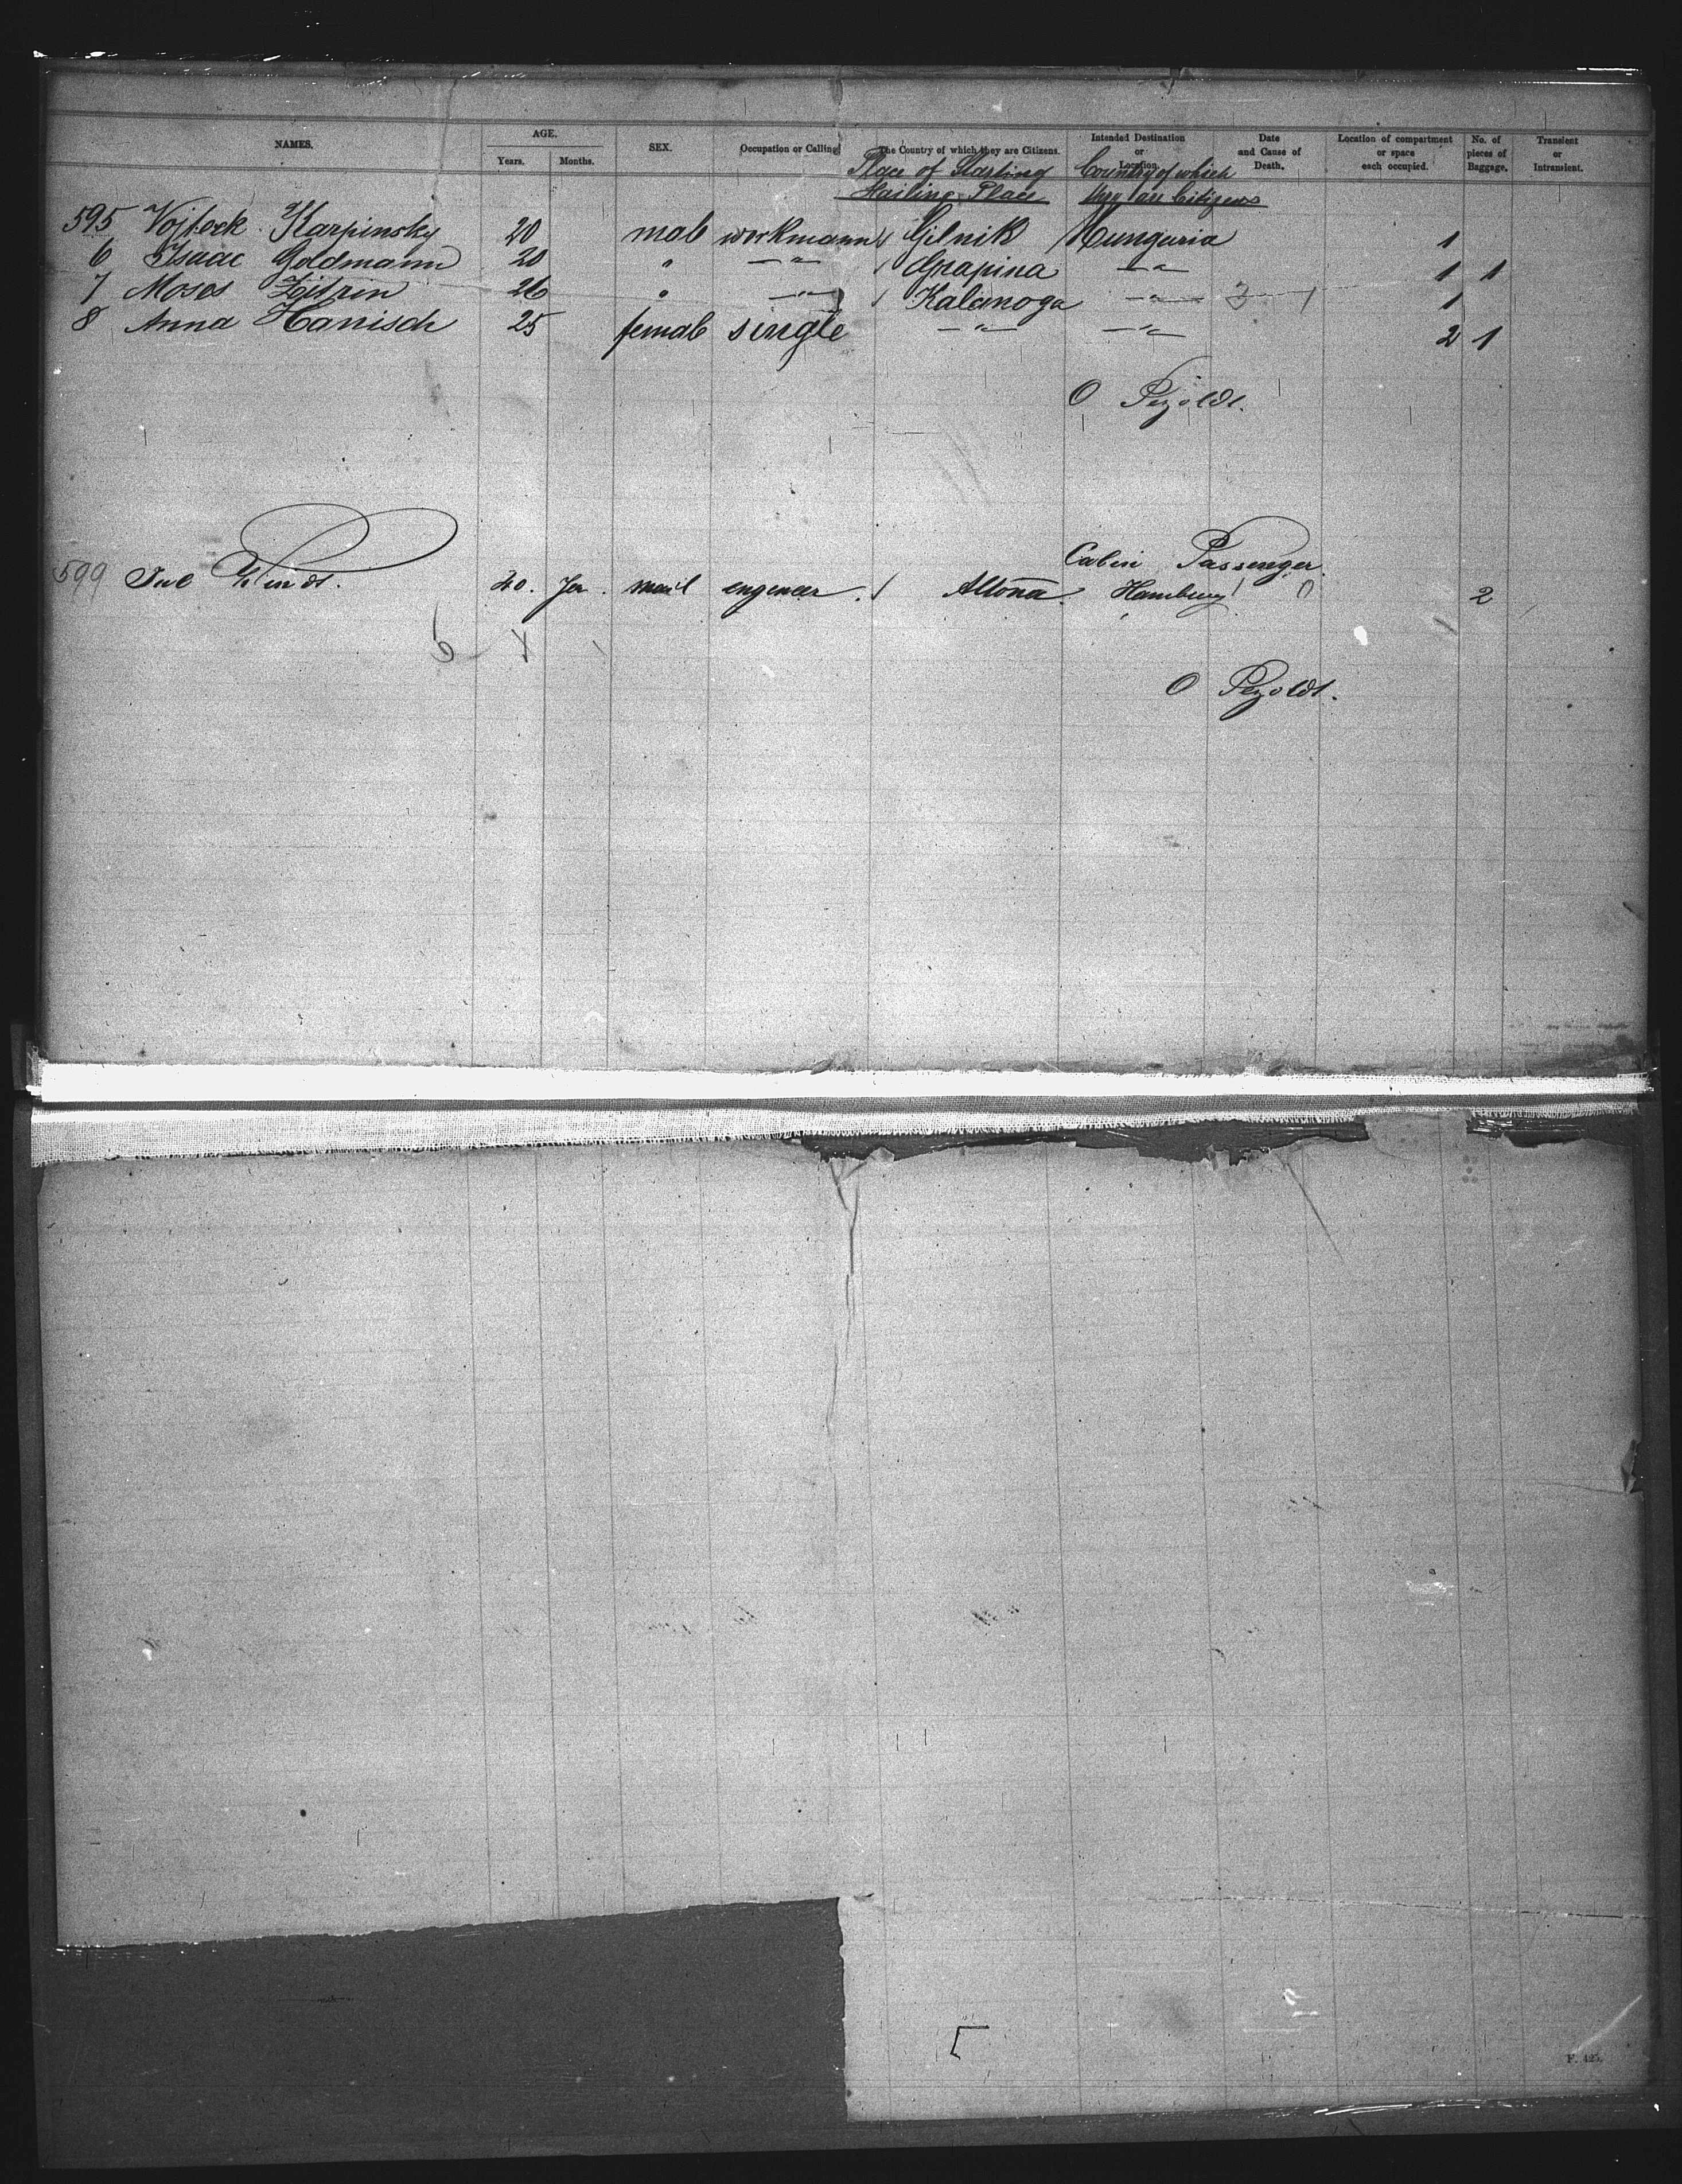 NAMES. AGE. Years. Months. SEX. Occupation or Calling. The Country of which they are Citizens. Intended Destination or Location. Date and Cause of Death. Location of compartment or space each occupied. No. of pieces of Baggage. Transient or Intransient.
Place of Starting Country of which
Hailing Place they are Citizens
595 Vojteck Karpinsky 20 male workmann Gilnik Hungaria 1
6 Isaac Goldmann 20 " —"— Grapina —"— 1 1
7 Moses Zitren 26 " —"— Kalanoga —"— 3 1
8 Anna Hanisch 25 female single —"— —"— 2 1
O Pezoldt.
Cabin Passenger.
599 20. male engeneer. Altona. Hamburg 0 2
O Pezoldt.
F. 425.